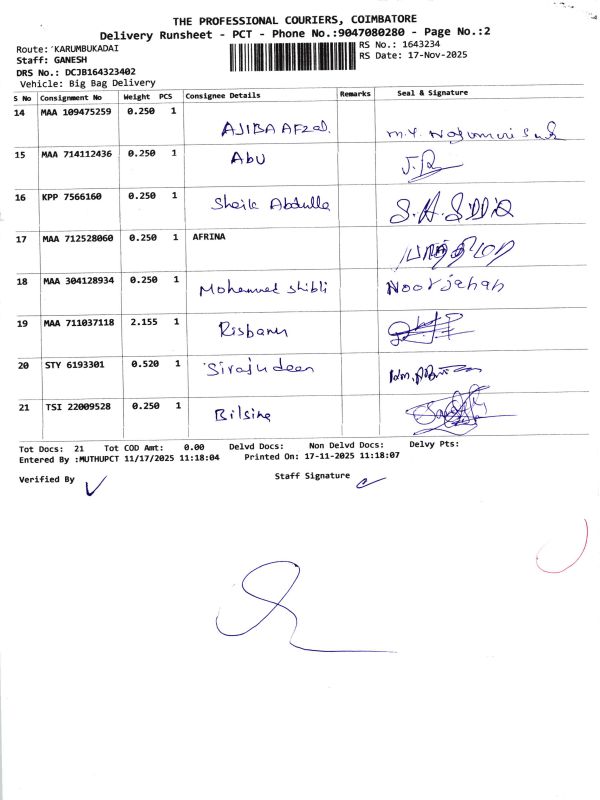 THE PROFESSIONAL COURIERS, COIMBATORE
Delivery Runsheet - PCT - Phone No.:9047080280 - Page No.:2
Route: 'KARUMBUKADAI
RS No.: 1643234
Staff: GANESH
RS Date: 17-Nov-2025
DRS No.: DCJB164323402
Vehicle: Big Bag Delivery
S No Consignment No Weight PCS Consignee Details Remarks Seal & Signature
14 MAA 109475259 0.250 1 AJIBA AFZAL.
15 MAA 714112436 0.250 1 Abu J.R
16 KPP 7566160 0.250 1 Sheik Abdulla S.A.SIDDIQ
17 MAA 712528060 0.250 1 AFRINA
18 MAA 304128934 0.250 1 Mohammed shibli Noorjahan
19 MAA 711037118 2.155 1 Risbanu
20 STY 6193301 0.520 1 Sirajudeen
21 TSI 22009528 0.250 1
Tot Docs: 21 Tot COD Amt: 0.00 Delvd Docs: Non Delvd Docs: Delvy Pts:
Entered By :MUTHUPCT 11/17/2025 11:18:04 Printed On: 17-11-2025 11:18:07
Verified By Staff Signature